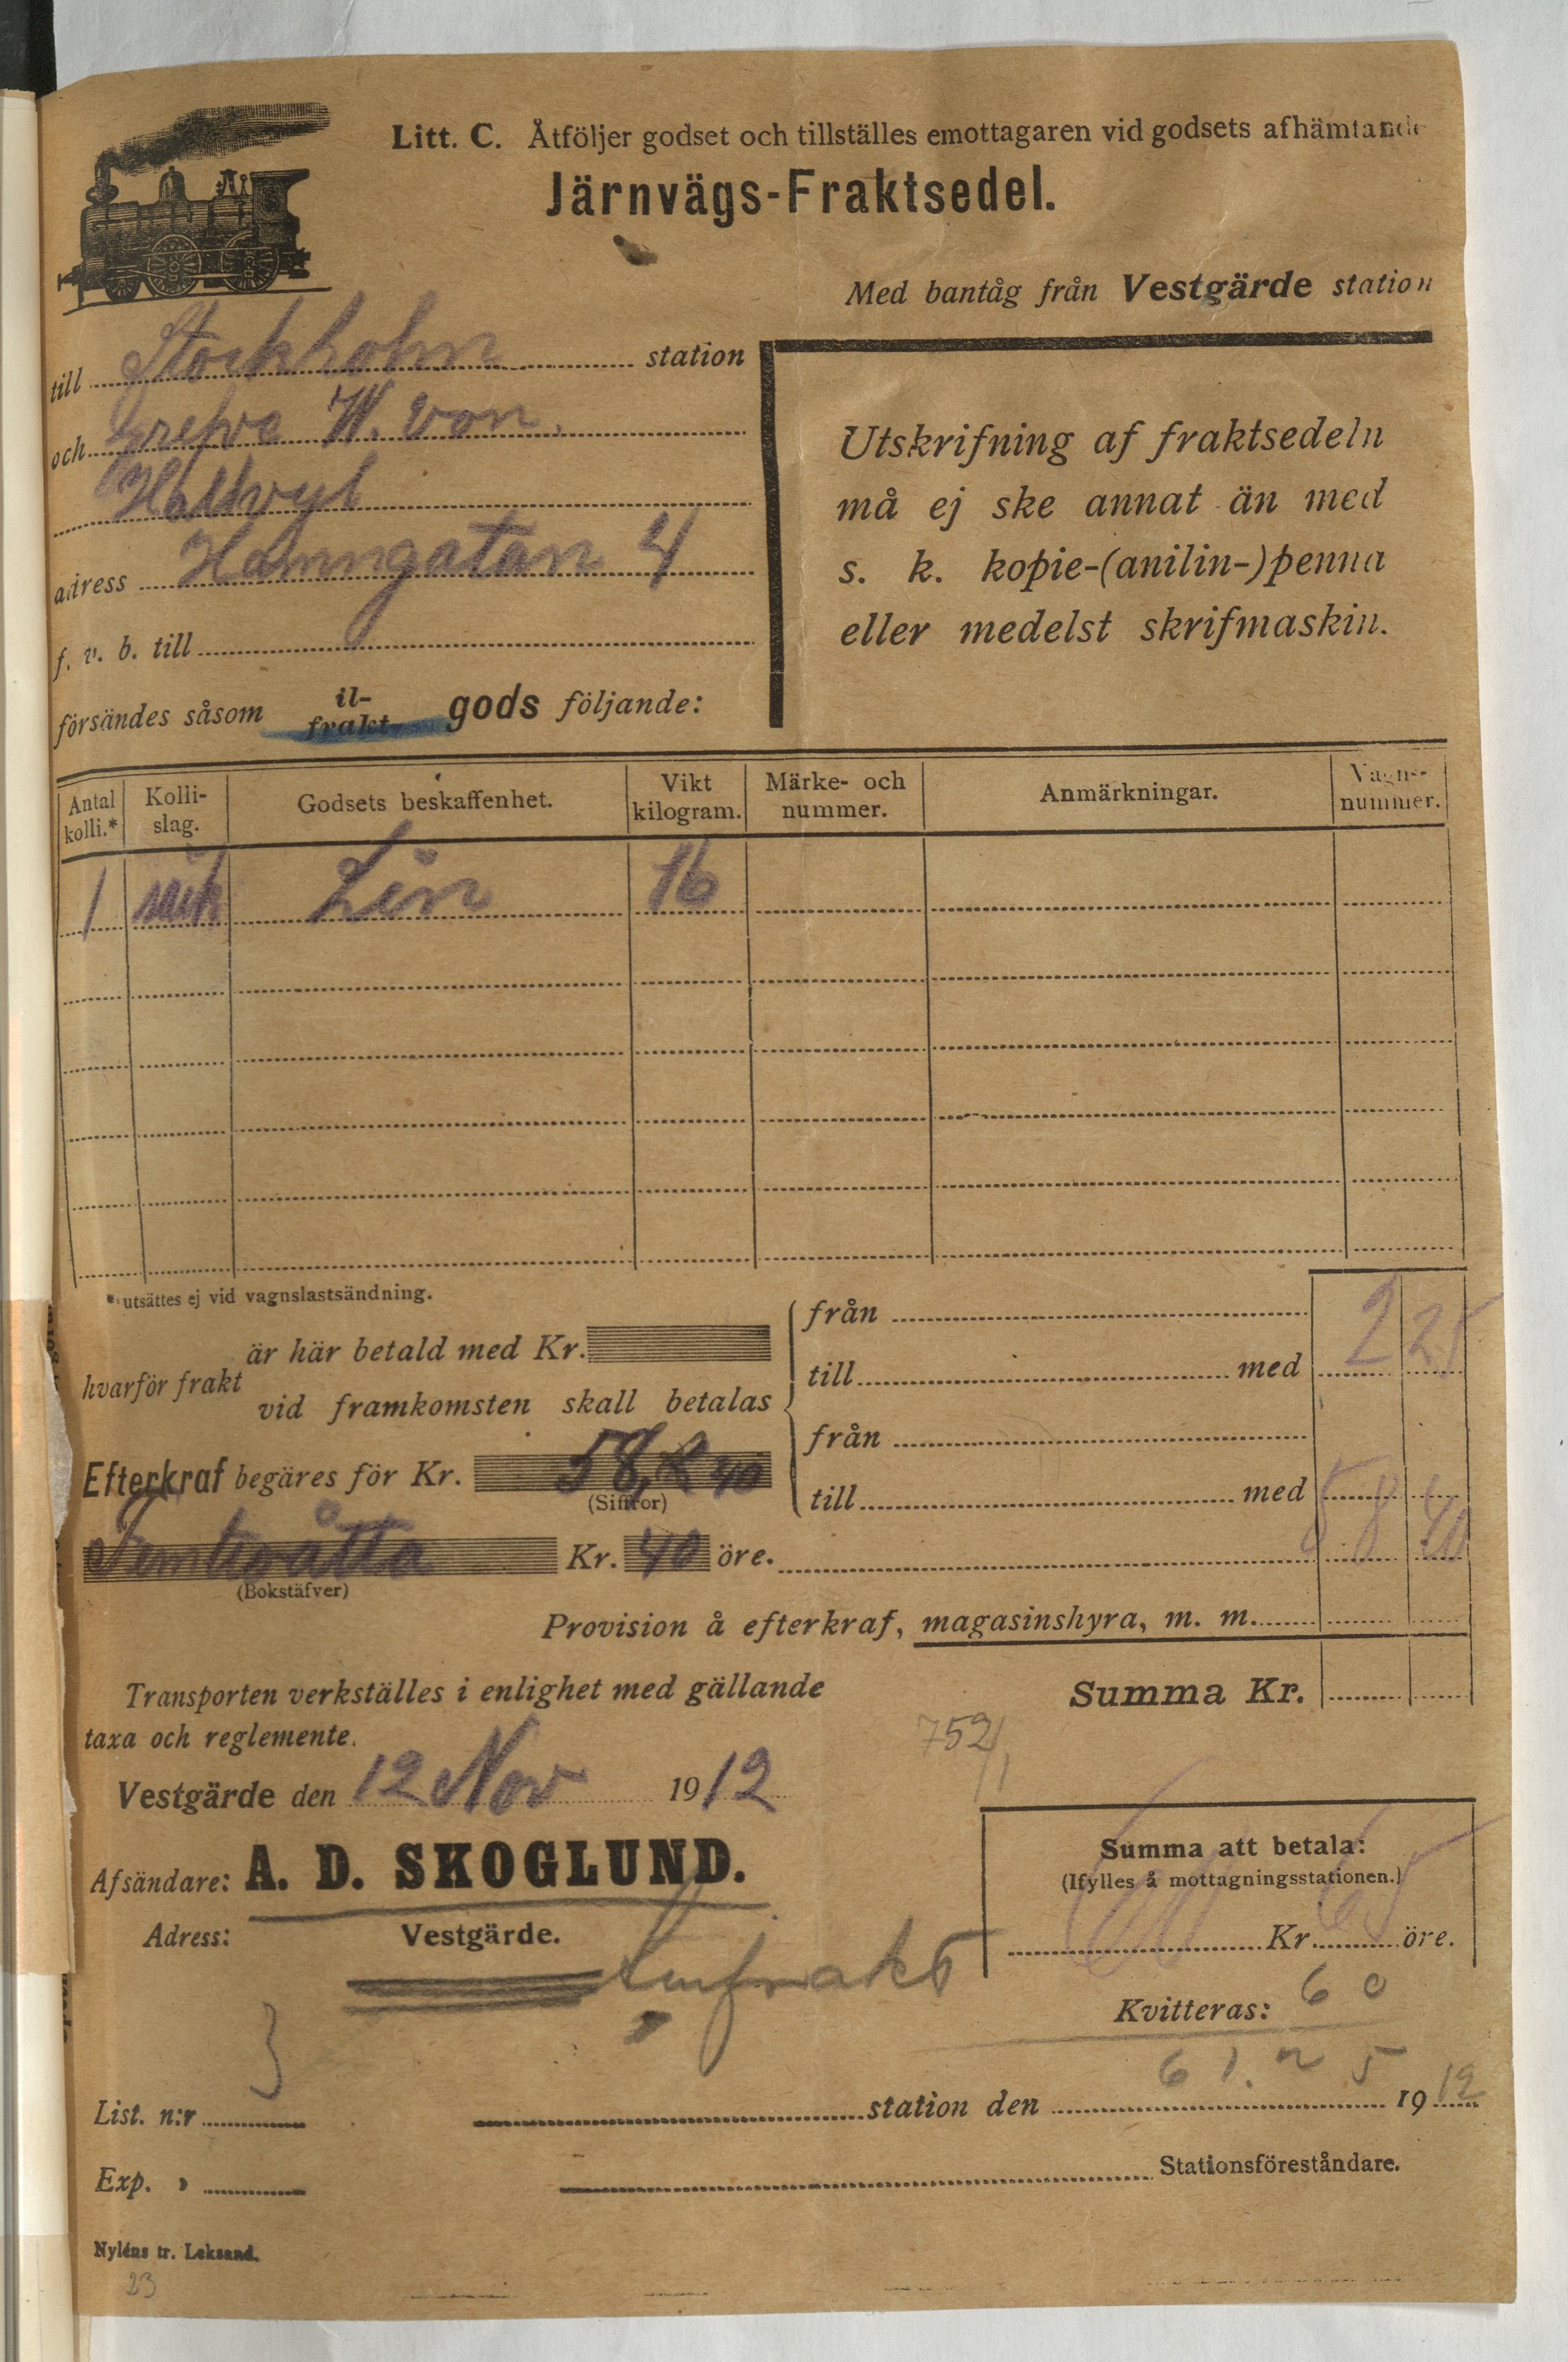 Litt. C. Åtföljer godset och tillställes emottagaren vid godsets afhämtande
Järnvägs-Fraktsedel.
Med bantåg från Vestgärde station
till Stockholm station
och Grefve W. von
Hallwyl
adress Hamngatan 4
f. v. b. till
försändes såsom il- frakt- gods följande:
Utskrifning af fraktsedeln
må ej ske annat än med
s. k. kopie-(anilin-)penna
eller medelst skrifmaskin.
Antal kolli.* Kolli-slag. Godsets beskaffenhet. Vikt kilogram. Märke- och nummer. Anmärkningar. Vagns-nummer.
1 säck Lin 16
* utsättes ej vid vagnslastsändning.
hvarför frakt
är här betald med Kr.
vid framkomsten skall betalas
från
till med 2 25
från
till med 58 40
Efterkraf begäres för Kr. 58, 40
(Siffror)
Femtioåtta Kr. 40 öre.
(Bokstäfver)
Provision å efterkraf, magasinshyra, m. m.
Summa Kr.
Transporten verkställes i enlighet med gällande
taxa och reglemente.
752/11
Vestgärde den 12 Nov 1912
Afsändare: A. D. SKOGLUND.
Adress: Vestgärde.
Summa att betala:
(Ifylles å mottagningsstationen.)
Kr. 65 öre.
Kvitteras: 60
61.25
3
List. n:r
station den 1912
Exp. »
Stationsföreståndare.
Nyléns tr. Leksand.
23